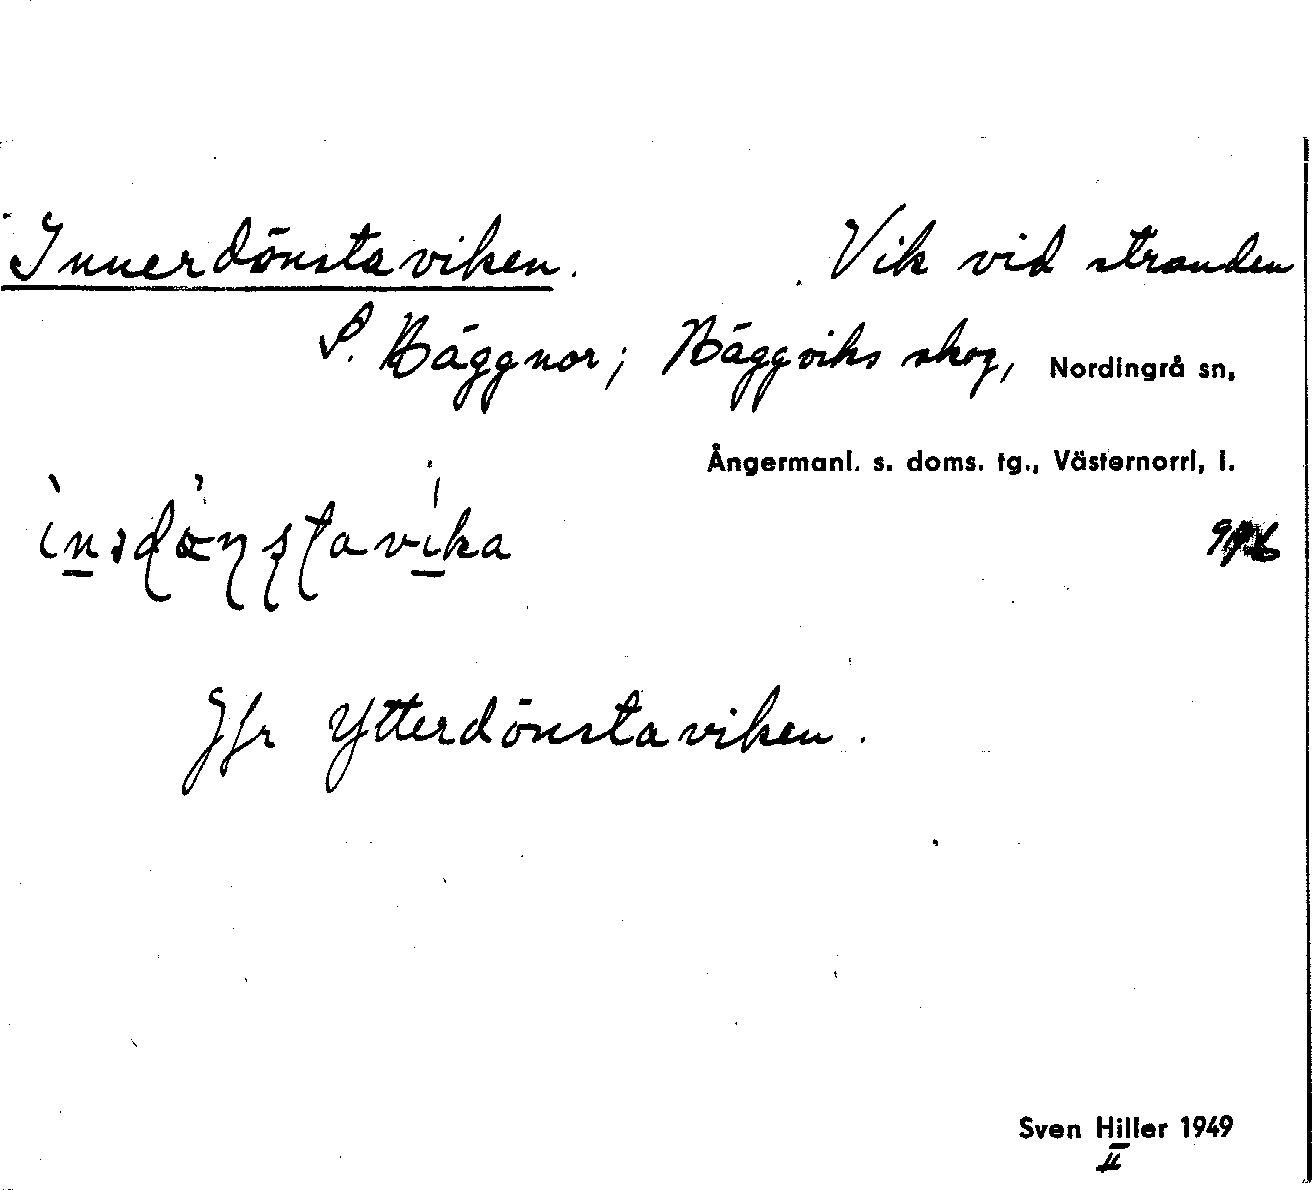 Innerdönstaviken. Vik vid stranden
S. Häggnor; Häggviks skog, Nordingrå sn,
Ångermanl. s. doms. tg., Västernorrl, l.
Jfr Ytterdönstaviken.
Sven Hiller 1949
II